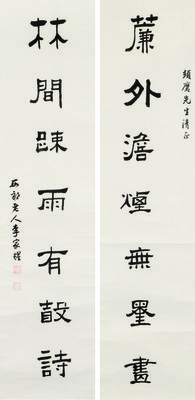 頌廣先生清正
簾外澹煙無墨畫
林間疎雨有聲詩
西郭老人李家煌